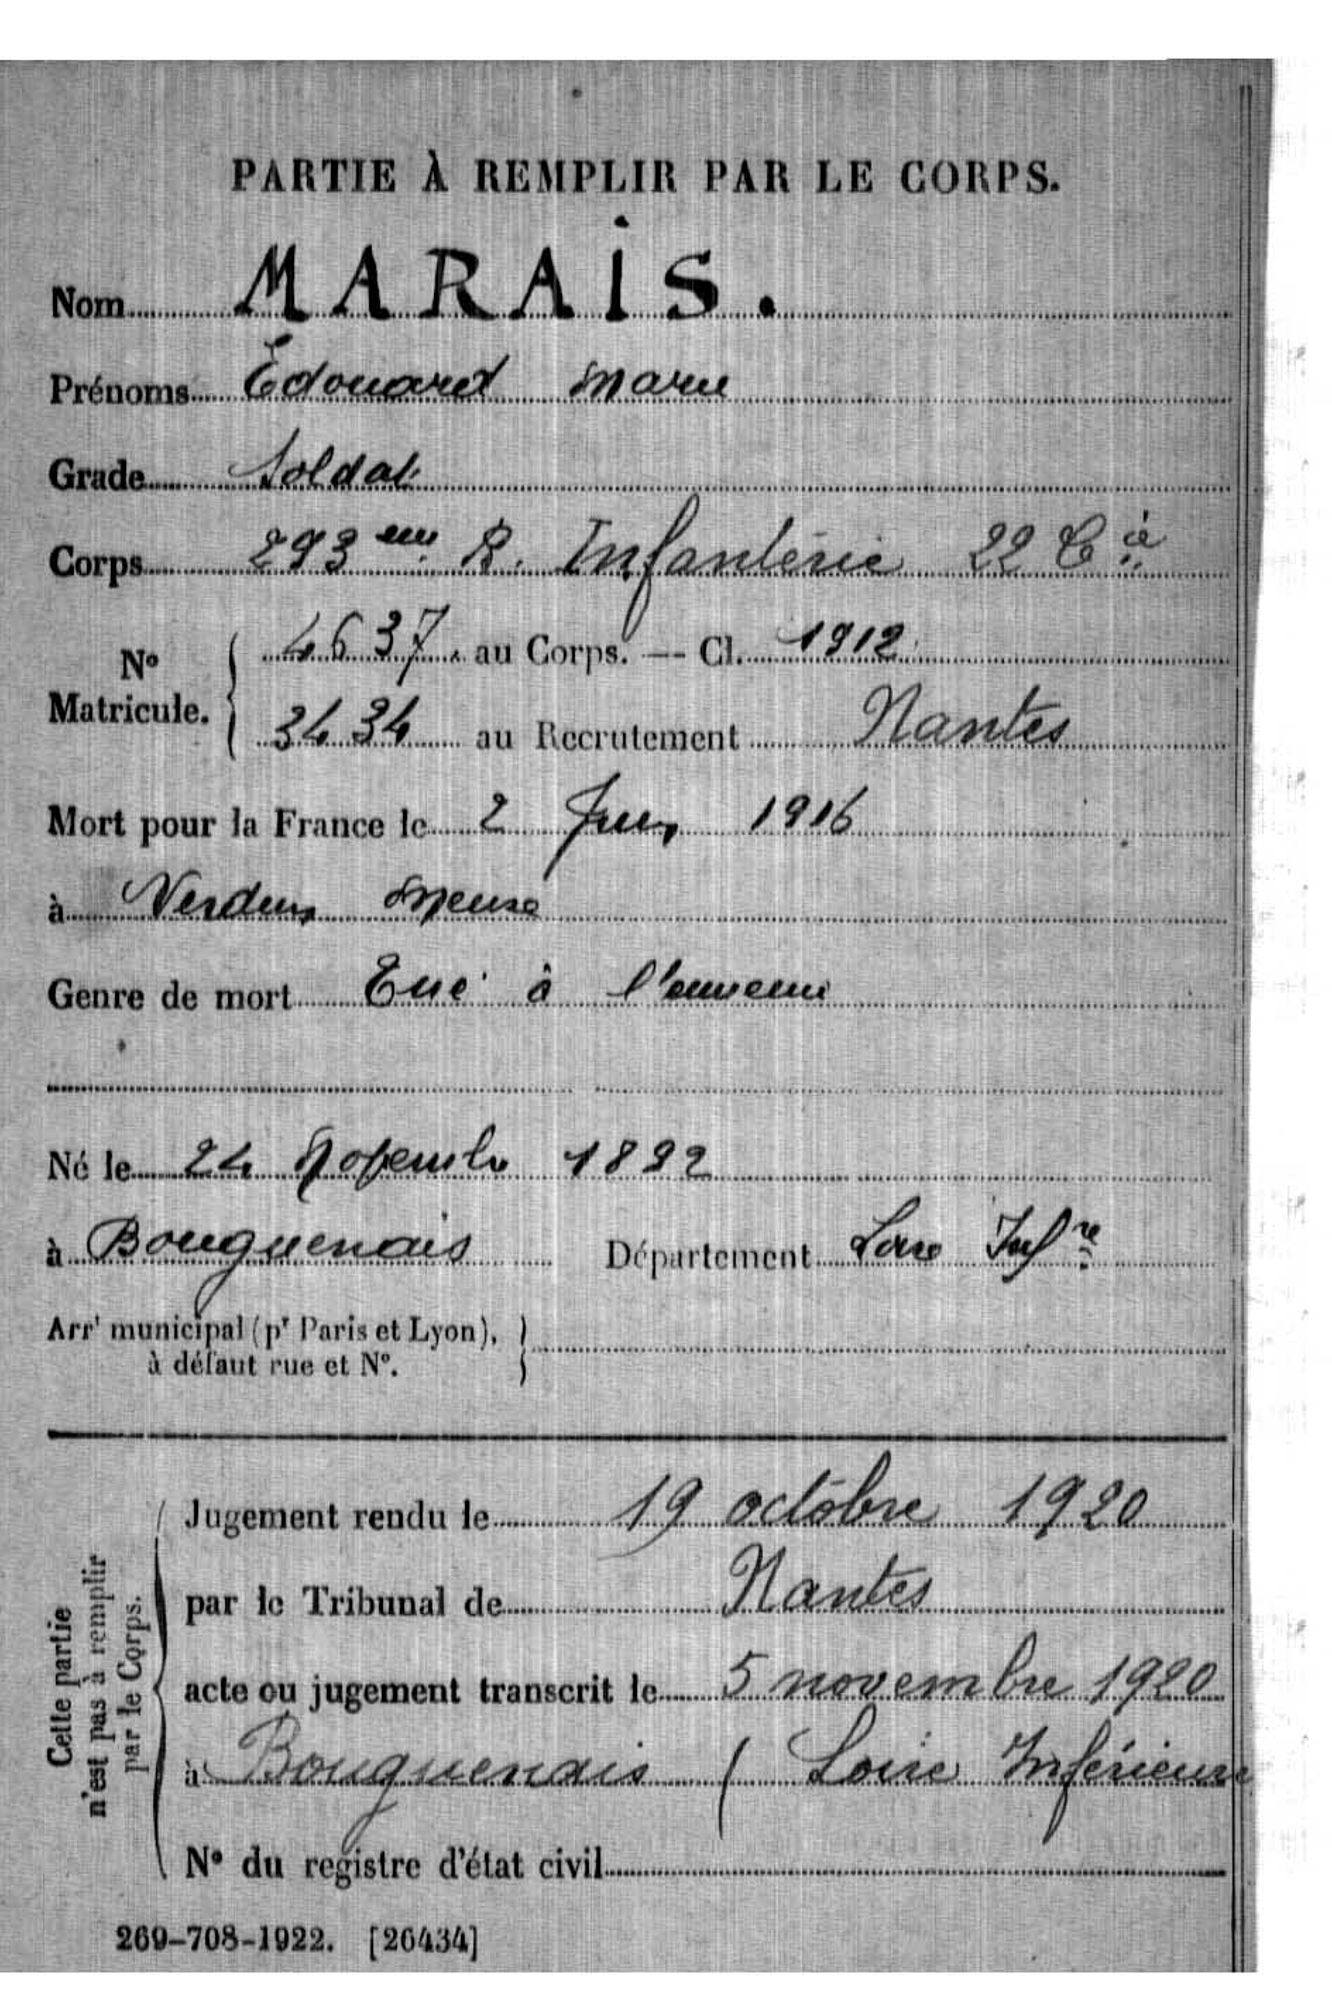 PARTIE À REMPLIR PAR LE CORPS.
Nom MARAIS.
Prénoms Edouard Marie
Grade Soldat
Corps 293 eme R. Infanterie 22 Cie
N° Matricule. 4637 au Corps. — Cl. 1912
3434 au Recrutement Nantes
Mort pour la France le 2 Juin 1916
à Verdun Meuse
Genre de mort Tué à l'ennemi
Né le 24 Novembre 1892
à Bouguenais Département Loire Infre
Arrt municipal (pr Paris et Lyon), à défaut rue et N°.
Cette partie n'est pas à remplir par le Corps.
Jugement rendu le 19 octobre 1920
par le Tribunal de Nantes
acte ou jugement transcrit le 5 novembre 1920
à Bouguenais (Loire Inférieure
N° du registre d'état civil
269-708-1922. [26434]